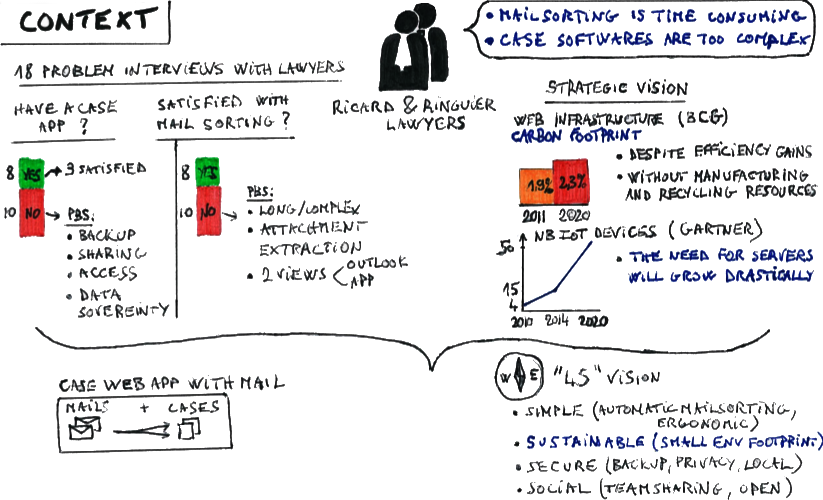 CONTEXT
• MAILSORTING IS TIME CONSUMING
• CASE SOFTWARES ARE TOO COMPLEX
18 PROBLEM INTERVIEWS WITH LAWYERS
HAVE A CASE
APP ?
8 YES → 3 SATISFIED
10 NO → PBS:
• BACKUP
• SHARING
• ACCESS
• DATA
SOVEREINTY
SATISFIED WITH
MAIL SORTING ?
8 YES
10 NO → PBS:
• LONG/COMPLEX
• ATTACHMENT
EXTRACTION
• 2 VIEWS < OUTLOOK
APP
RICARD & RINGUIER
LAWYERS
STRATEGIC VISION
WEB INFRASTRUCTURE (BCG)
CARBON FOOTPRINT
1.9% 2.3%
2011 2020
• DESPITE EFFICIENCY GAINS
• WITHOUT MANUFACTURING
AND RECYCLING RESOURCES
NB IOT DEVICES (GARTNER)
50
15
4
2010 2014 2020
• THE NEED FOR SERVERS
WILL GROW DRASTICALLY
CASE WEB APP WITH MAIL
MAILS + CASES
W E "4S" VISION
• SIMPLE (AUTOMATIC MAILSORTING,
ERGONOMIC)
• SUSTAINABLE (SMALL ENV FOOTPRINT)
• SECURE (BACKUP, PRIVACY, LOCAL)
• SOCIAL (TEAMSHARING, OPEN)